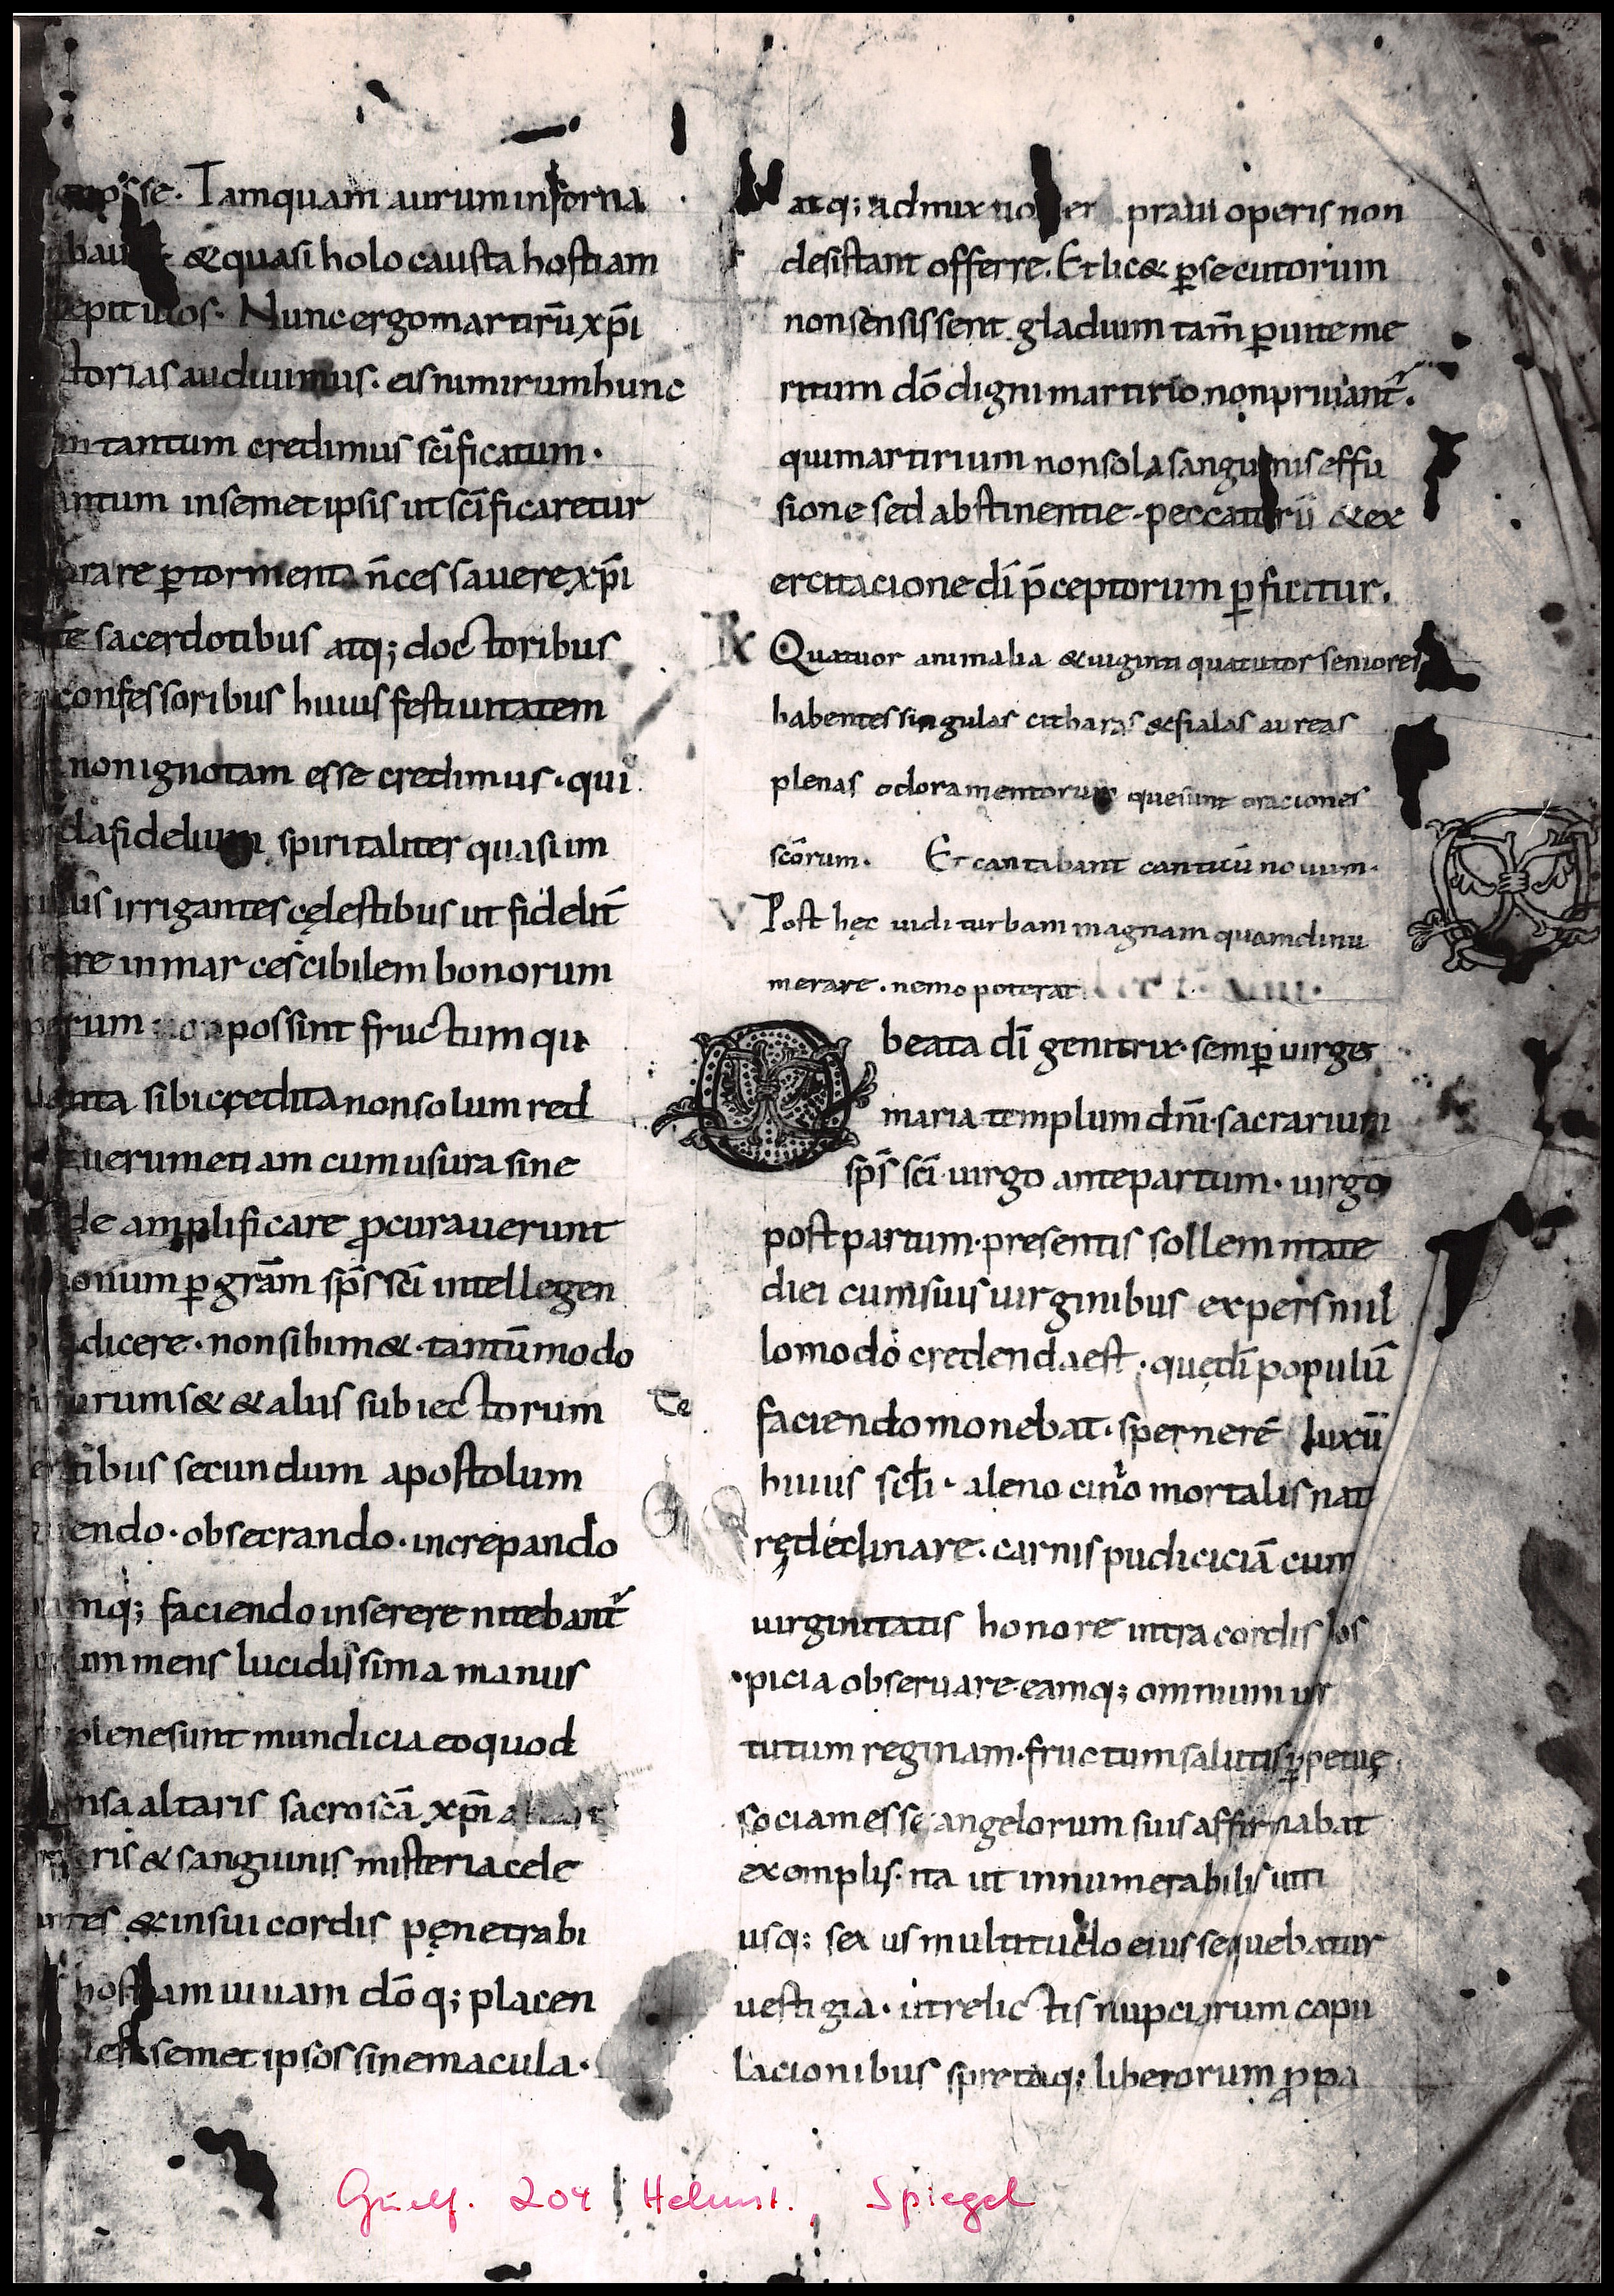 sse. Tamquam aurum in forna
&quasi holocausta hostiam
epit illos. Nunc ergo martirū xp̄i
storias audiuimus. eis nimirum hunc
in tantum credimus sc̄ificatum.
antum insemet ipsis ut sc̄ificaretur
rare ꝑ tormenta n̄ cessauere xp̄i
sacerdotibus atq; doctoribus
confessoribus huius festiuitatem
non ignotam esse credimus. qui
da fidelium spiritaliter quasi im
irrigantes cęlestibus ut fideliū
re inmarcescibilem bonorum
rum non possint fructum qui
sibi credita non solum red
uerum etiam cum usura sine
de amplificare ꝓcurauerunt
onium ꝑ grām sp̄s sc̄i intellegen
dicere. non sibim& tantūmodo
rum s& & aliis subiectorum
tibus secundum apostolum
endo. obsecrando. increpando
mq; faciendo inserere nitebant᷑
mens lucidissima manus
plene sunt mundicia eo quod
nsa altaris sacro sc̄a xp̄i
ris & sanguinis misteria cele
ntes & in sui cordis pęnetrabi
hostiam uiuam dō q; placen
est semet ipsos sine macula.
te
atq; admixtio praui operis non
desistant offerre. Et lic& ꝑsecutorum
non sensissent gladium tam̄ ꝑ uite me
ritum dō digni martirio non priuant᷑.
qui martirium non sola sanguinis effu
sione sed abstinentie peccatorū & ex
ercitacione dī p̄ceptorum ꝑficitur.
R Quatuor animalia & uiginti quatutor seniores
habentes singulas citharas & fialas aureas
plenas odoramentorum que sunt oraciones
sc̄orum. Et cantabant canticū nouum.
V Post hęc uidi turbam magnam quam dinu
merare. nemo poterat
O beata dī genitrix semꝑ uirgo
maria templum dn̄i sacrarium
sp̄s sc̄i uirgo ante partum. uirgo
post partum. presentis sollemnitate
diei cum suis uirginibus expers nul
lomodo credenda est. quę dī populū
faciendo monebat. spernere luxū
huius scl̄i. aleno cino mortalis nat
rę declinare. carnis pudiciciā cum
uirginitatis honore intra cordis hos
picia obseruare eamq; omnium uir
tutum reginam. fructum salutis ꝑpetuę
sociam esse angelorum suis affirmabat
exemplis. ita ut innumerabilis utri
usq; sexus multitudo eius sequebatur
uestigia. ut relictis nupciarum copu
lacionibus spretaq; liberorum ꝓpa
Guelf. 204 Helmst., Spiegel